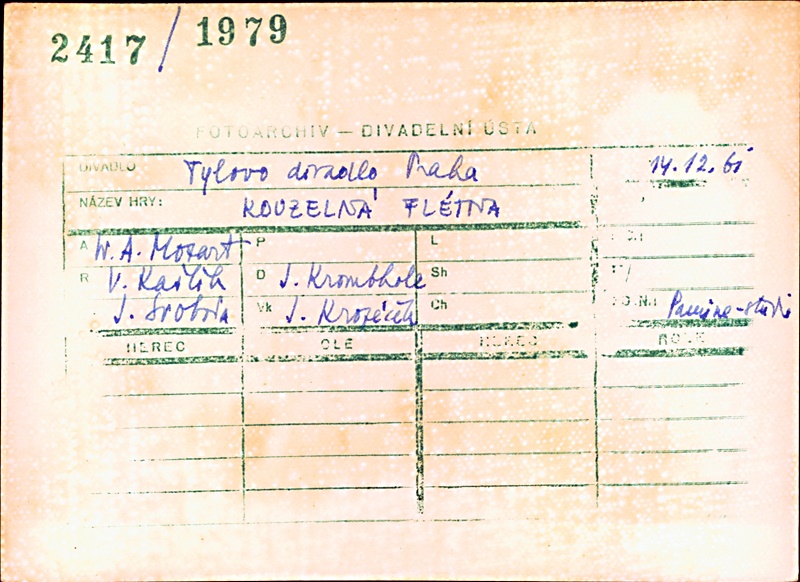 2417/1979
FOTOARCHIV — DIVADELNÍ ÚSTA
DIVADLO Tylovo divadlo Praha 14.12.61
NÁZEV HRY: KOUZELNÁ FLÉTNA
A W. A. Mozart P L
R V. Kašlík D J. Krombholc Sh
J. Svoboda Vk J. Kropáček Ch Pamina-studi
HEREC OLE HEREC ROLE